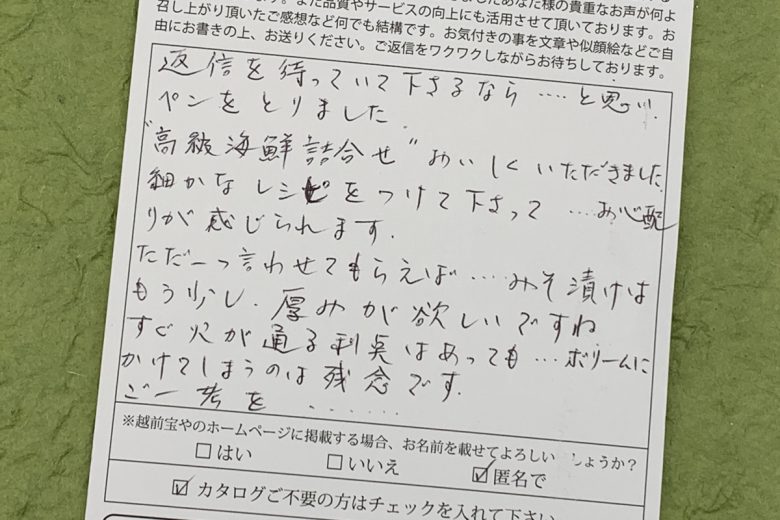 ましたあなた様の貴重なお声が何よ
ます。また品質やサービスの向上にも活用させて頂いております。お
召し上がり頂いたご感想など何でも結構です。お気付きの事を文章や似顔絵などご自
由にお書きの上、お送りください。ご返信をワクワクしながらお待ちしております。
返信を待っていて下さるなら‥‥と思い
ペンをとりました
"高級海鮮詰合せ"おいしくいただきました
細かなレシピをつけて下さって…お心配
りが感じられます.
ただ一つ言わせてもらえば‥‥みそ漬けは
もう少し.厚みが欲しいですね
すぐ火が通る利点はあっても…ボリームに
かけてしまうのは残念です.
ご一考を......
※越前宝やのホームページに掲載する場合、お名前を載せてよろしい しょうか?
□はい □いいえ ☑匿名で
☑ カタログご不要の方はチェックを入れて下さい